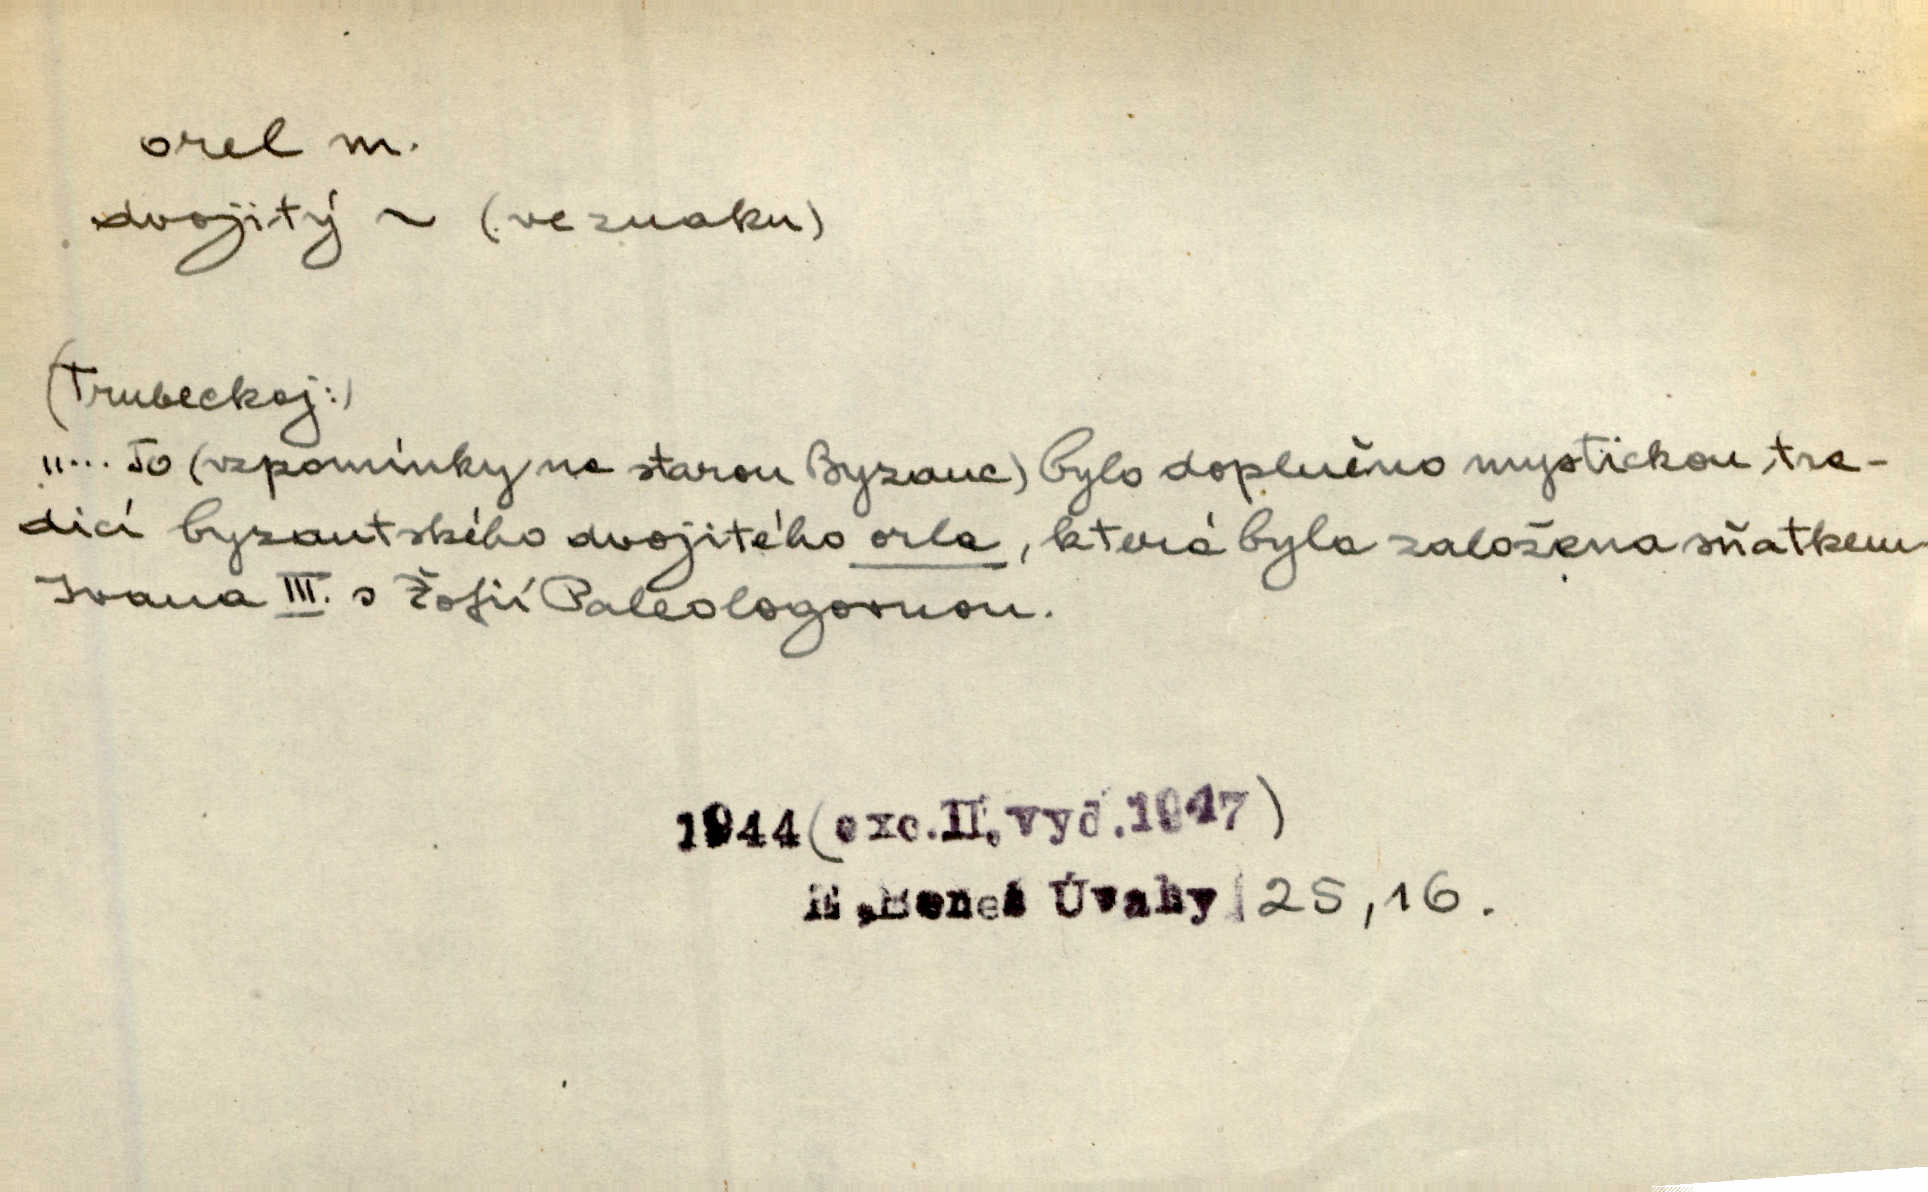 orel m.
dvojitý ~ (ve znaku)
(Trubeckoj:)
"... To (vzpomínky na starou Byzanc) bylo doplněno mystickou tra-
dicí byzantského dvojitého orla, která byla založena sňatkem
Ivana III. s Žofií Paleologovnou.
1944 (exc. II. vyd. 1947)
E. Beneš Úvahy 25,16.